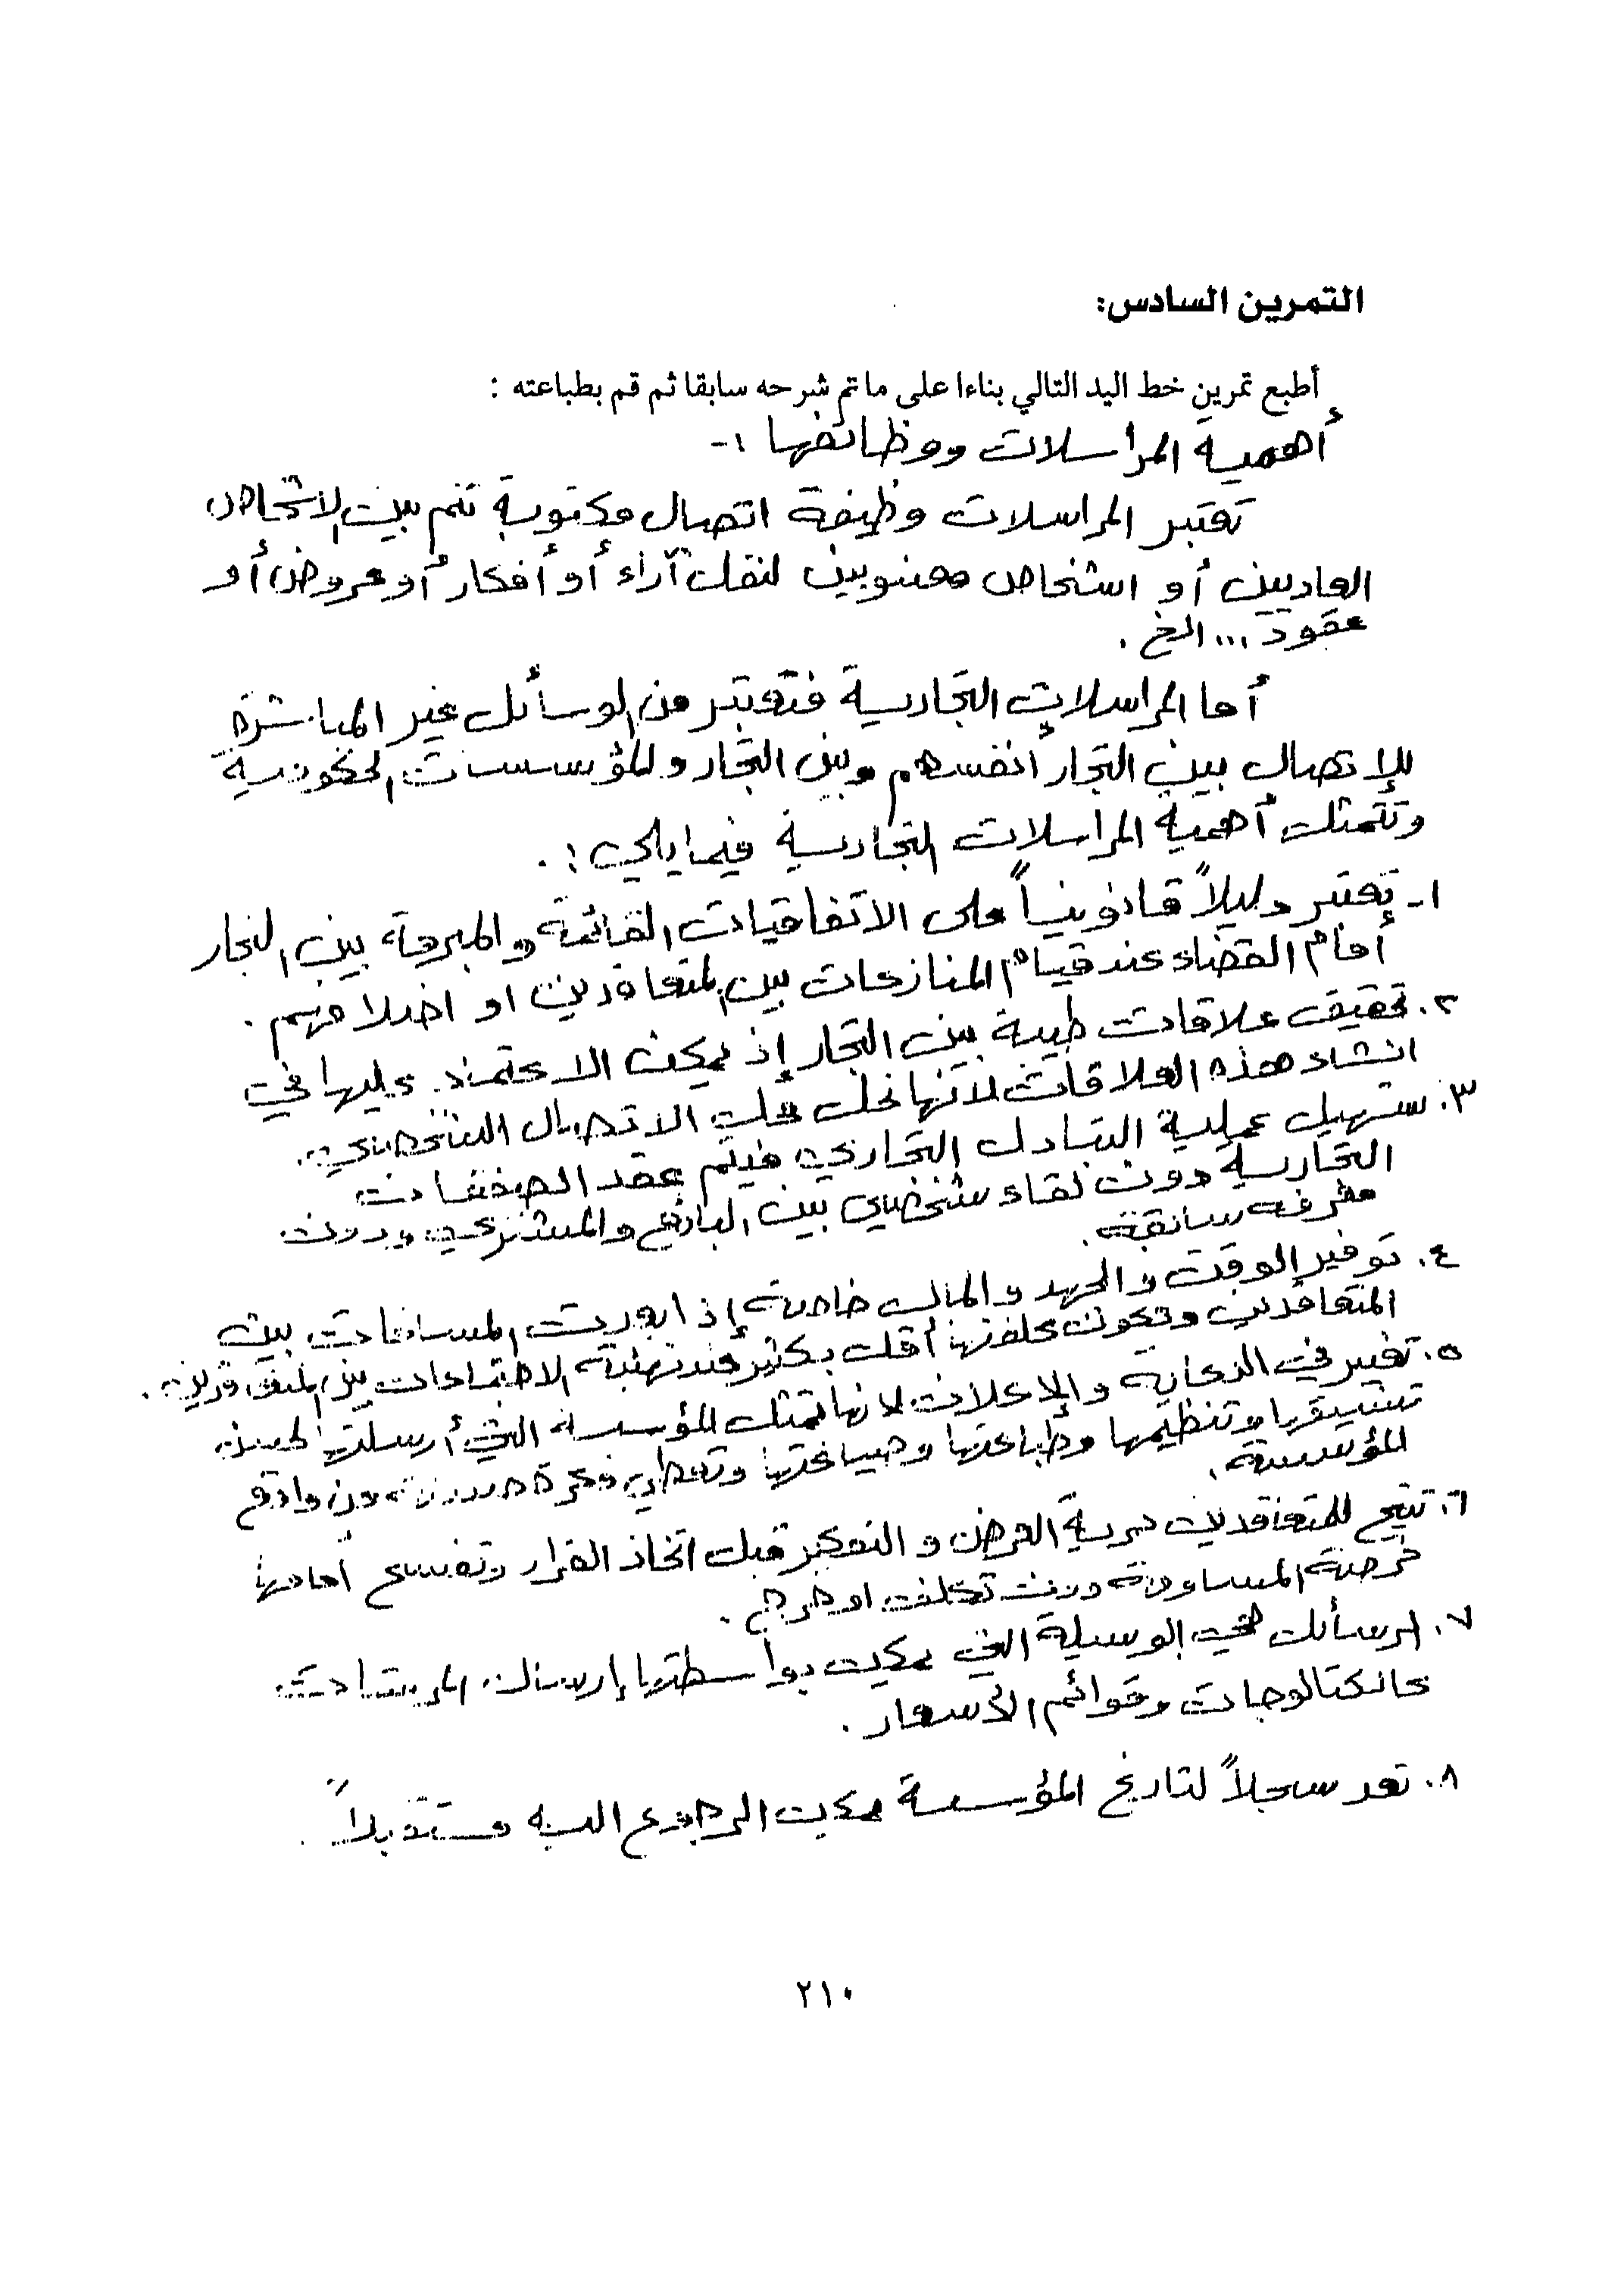 التمرين السادس:
أطبع تمرين خط اليد التالي بناءا على ما تم شرحه سابقا ثم قم بطباعته :
أهمية المراسلات ووظائفها :-
تعتبر المراسلات وظيفة اتصال مكتوبة تتم بين الاشخاص
العاديين أو اشخاص معنويين لنقل آراء أو أفكار أو عروض أو
عقود ... الخ .
أما المراسلات التجارية فتعتبر من الوسائل غير المباشرة
للإتصال بين التجار أنفسهم وبين التجار والمؤسسات الحكومية
وتتمثل أهمية المراسلات التجارية فيما يلي : .
١- تعتبر دليلاً قانونياً على الاتفاقيات القائمة والمبرمة بين التجار
أمام القضاء عند قيام المنازعات بين المتعاقدين او اختلافهم .
٢. تحقيق علاقات طيبة بين التجار إذ يمكن الاعتماد عليها في
انشاء هذه العلاقات لانها تحل محل الاتصال الشخصي .
٣. تسهيل عملية التبادل التجاري فيتم عقد الصفقات
التجارية دون لقاء شخصي بين البائع والمشتري وبدون
معرفه سابقة .
٤. توفير الوقت والجهد والمال خاصة إذا بعدت المسافات بين
المتعاقدين وتكون تكلفتها أقل بكثير من تهيئة الاجتماعات بين المتعاقدين .
٥. تعتبر في الدعاية والإعلان لانها تمثل المؤسسة التي أرسلتها لحسن
تنسيقها وتنظيمها وطباعتها وصياغتها وتعطي فكرة حسنة عن واقع
المؤسسة .
٦. تتيح للمتعاقدين حرية العرض والتفكير قبل اتخاذ القرار وتفسح أمامها
فرصة المساومة دون تكلف او حرج .
٧. الرسائل هي الوسيلة التي يمكن بواسطتها إرسال
كالكتالوجات وقوائم الأسعار .
٨. تعد سجلاً لتاريخ المؤسسة يمكن الرجوع اليه مستقبلاً .
٢١٠